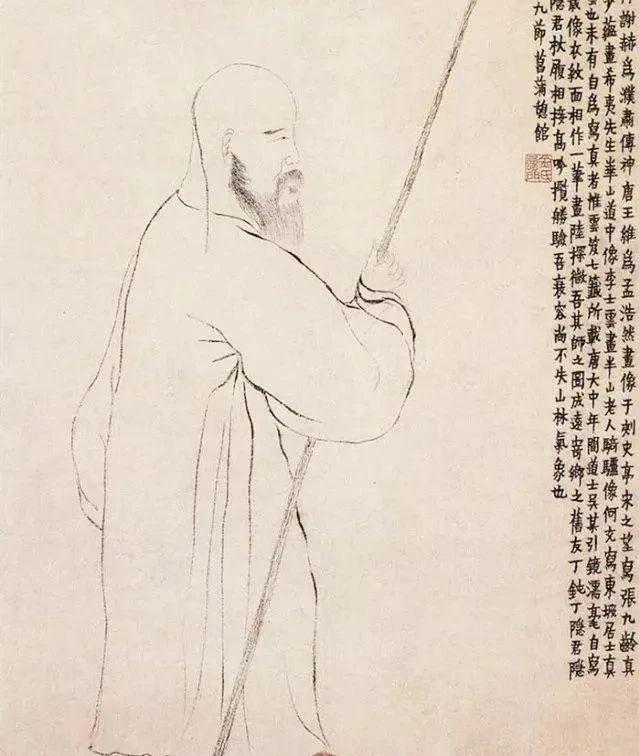 謝赫為濮肅傳神唐王維為孟浩然畫像于刺史亭宋之望寫張九齡真
少蘊畫希夷先生華山道中像李士雲畫半山老人騎驢像何充寫東坡居士真
也未有自為寫真者惟雲笈七籤所載唐大中年間道士吳某引鏡濡毫自寫
歲像衣紋面相作一筆畫陸探微吾其師之圖成遠寄鄉之舊友丁鈍丁隱君隱
隱君杖履相接高吟攬勝驗吾衰容尚不失山林氣象也
九節菖蒲憩館